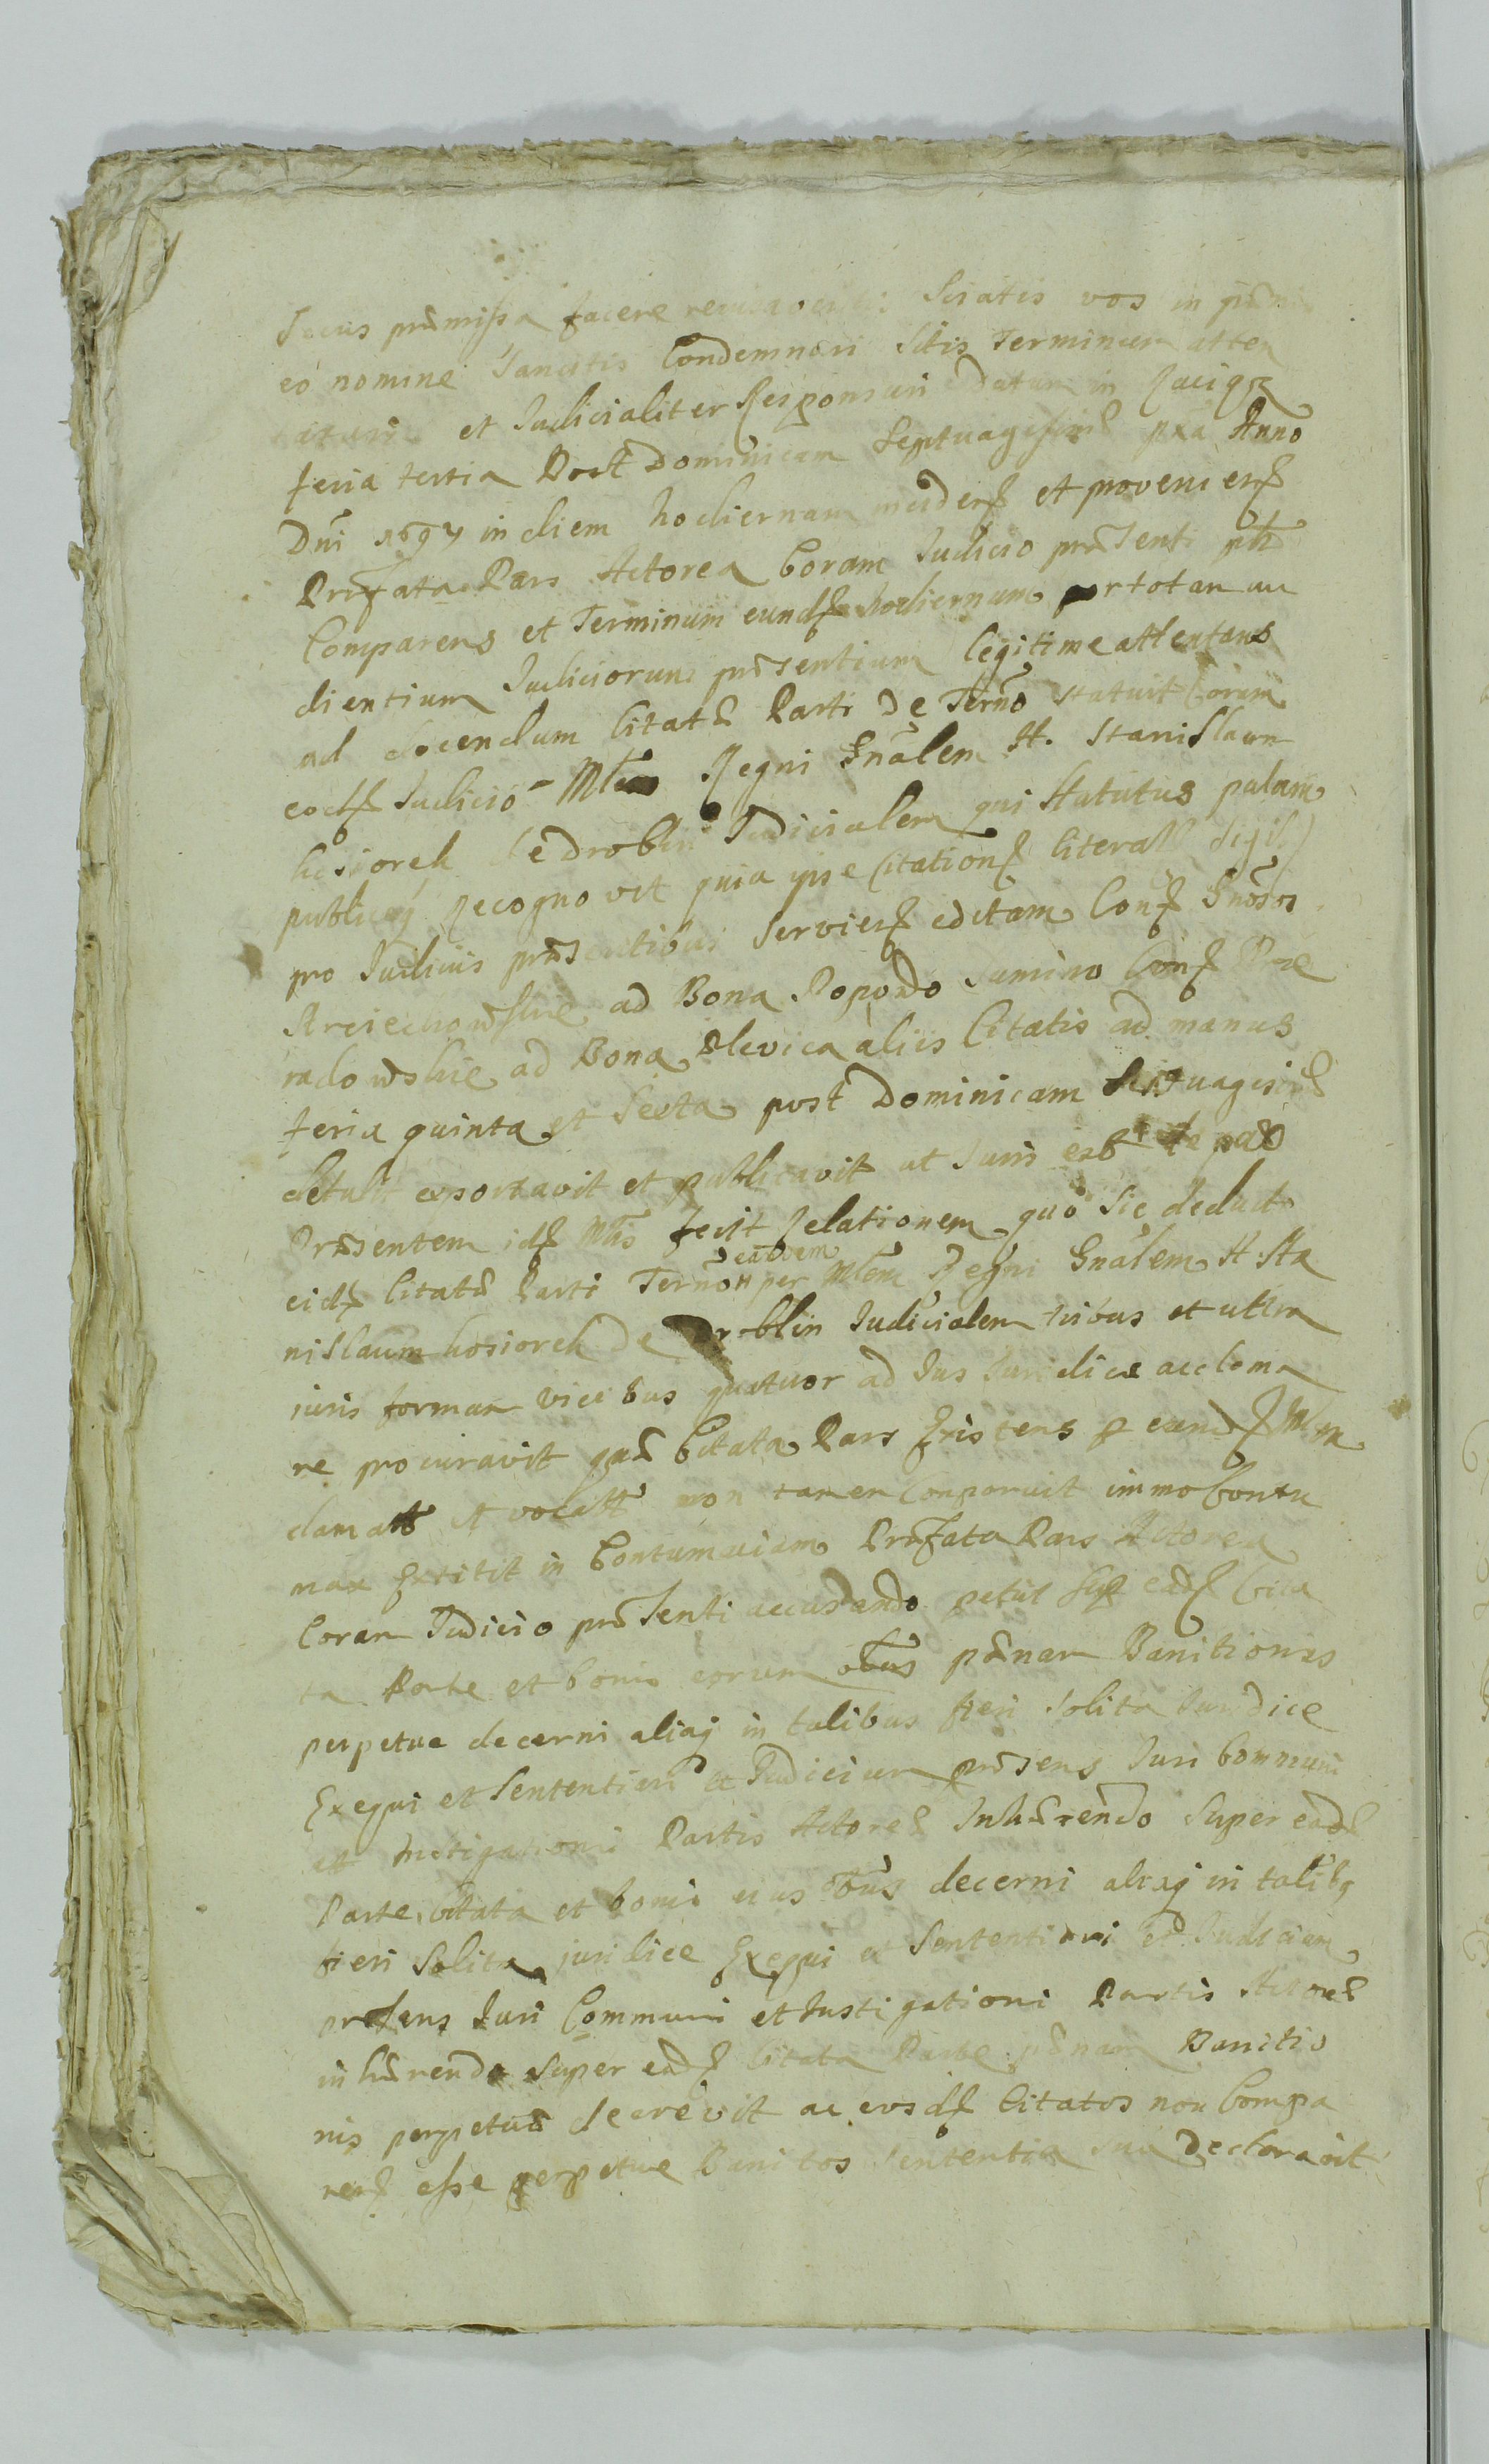 Secus præmissa facere Sciatis vos in
eo nomine Sancitis Condemnari Sitis Terminum atten
et Judicialiter Responsuri Datum in Raciąż
feria tertia Post Dominicam Septuagesimæ pxa Anno
Dni 1697 in diem hodiernam inciden et provenien
Præfata Pars Actorea Coram Judicio præsenti pttr
Comparens et Terminum eund hodiernum per totam au
dientium Judiciorum præsentium legitime attentans
ad docendum Citatæ Parti De Termo statuit Coram
eod Judicio Mlem Regni Gnalem H. Stanislaum
kosiorek de droblin Judicialem qui Statutus palam
publicq recognovit quia ipse Citation literall sigill
pro Judiciis præsentibus Servien editam Con Gnosos
ad Bona Popowo Con Pre
radowskie ad Bona Plevica aliis Citatis ad manus
feria quinta et Sexta post Dominicam Septuagesimæ
detulit exportavit et publicavit ut Juris
Præsentem id Mlis fecit Relationem quo Sic deduct
eid Citatæ Parti Termo eabdem per Mlem Regni Gnalem H. Sta
nislaum kosiorek De Droblin Judicialem tribus et ultra
juris formam vicibus quatuor ad Jus Juridice acclama
re procuravit quæ Citata Pars Existens p eund Mlem
clamatt et vocatt non tamen Comparuit immo Contu
max Extitit in Contumaciam Præfata Pars Actorea
Coram Judicio præsenti accusando petiit Sup ead Cita
ta Parte et bonis eorum obus pænam Banitionis
perpetuæ decerni aliaq in talibus fieri Solita Juridice
Exequi et Sententiari et Judicium præsens Juri Communi
et Instigationi Partis Actoreæ Inhærendo Super ead
Parte Citata et bonis eius obus decerni aliaq in talibq
fieri Solita juridice Exequi et Sententiari et Judicium
præsens Juri Communi et Instigationi Partis Actoreæ
inhærendo Super ead Citata Parte pænam Banitio
nis perpetuæ decrevit ac eosd Citatos non Compa
ren esse perpetue Banitos Sententia sua Declaravit